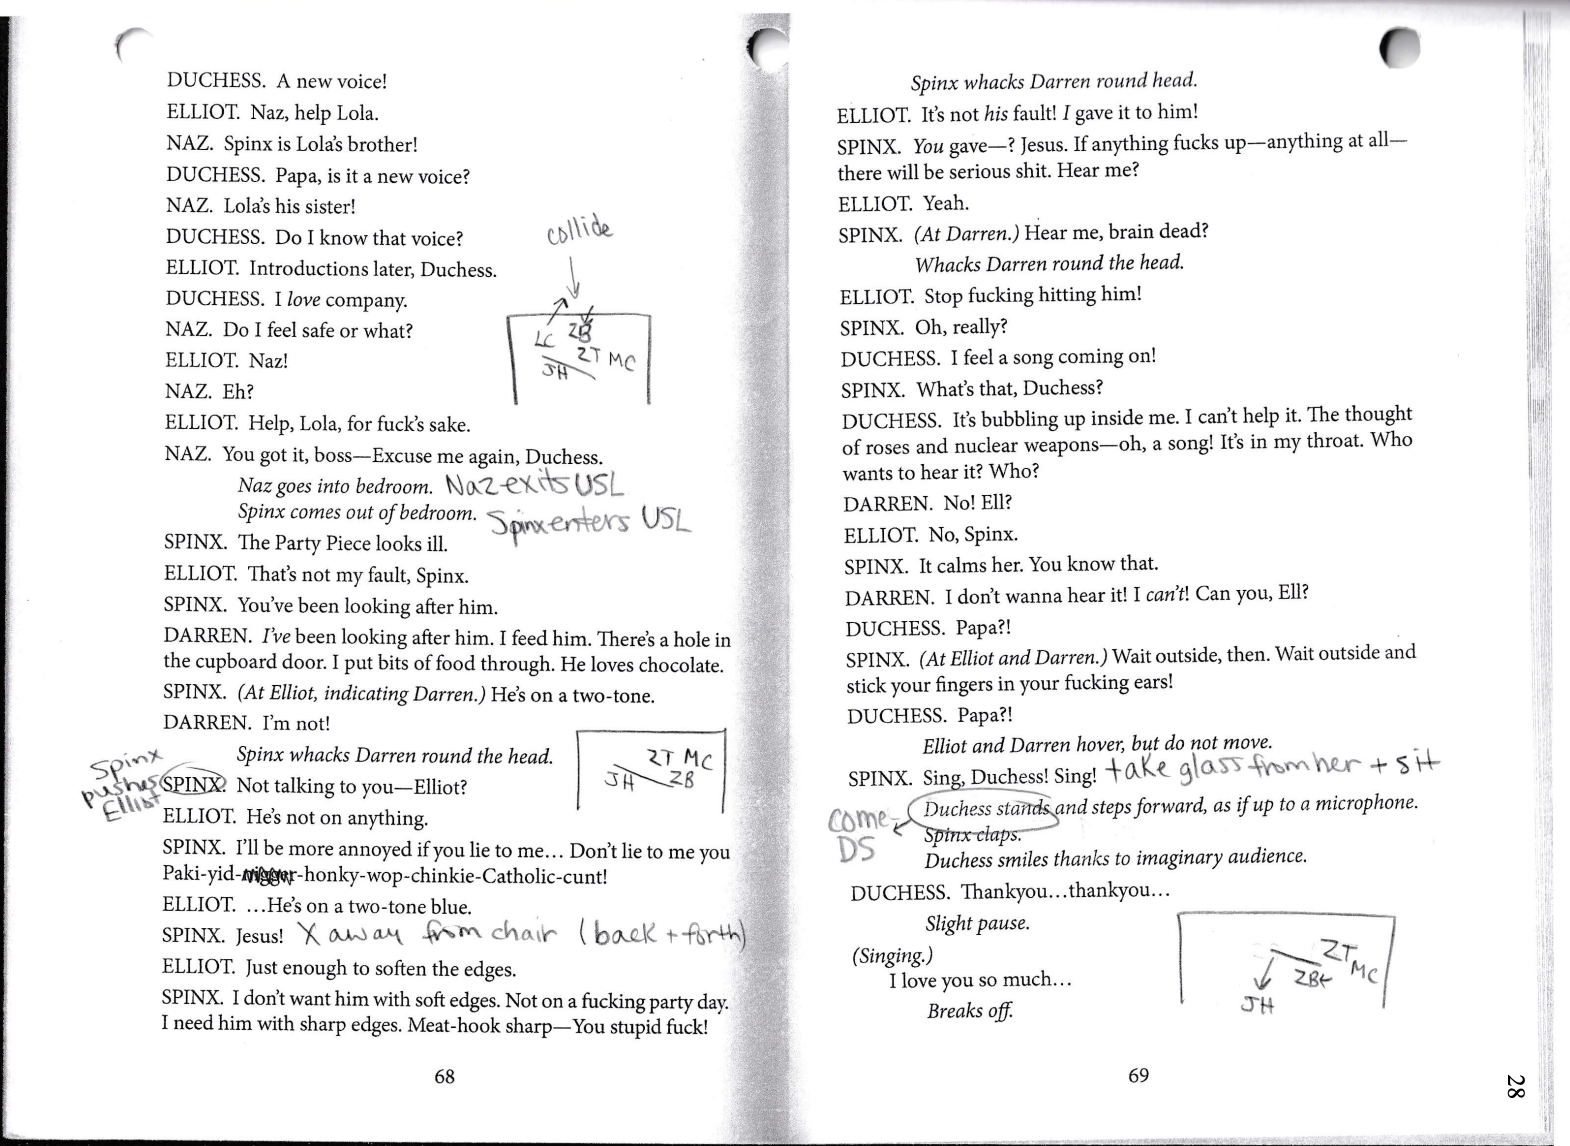 DUCHESS. A new voice!
ELLIOT. Naz, help Lola.
NAZ. Spinx is Lola's brother!
DUCHESS. Papa, is it a new voice?
NAZ. Lola's his sister!
DUCHESS. Do I know that voice?
collide
ELLIOT. Introductions later, Duchess.
DUCHESS. I love company.
NAZ. Do I feel safe or what?
LC ZB
ZT MC
JH
ELLIOT. Naz!
NAZ. Eh?
ELLIOT. Help, Lola, for fuck's sake.
NAZ. You got it, boss—Excuse me again, Duchess.
Naz goes into bedroom. Naz exits USL
Spinx comes out of bedroom. Spinx enters USL
SPINX. The Party Piece looks ill.
ELLIOT. That's not my fault, Spinx.
SPINX. You've been looking after him.
DARREN. I've been looking after him. I feed him. There's a hole in
the cupboard door. I put bits of food through. He loves chocolate.
SPINX. (At Elliot, indicating Darren.) He's on a two-tone.
DARREN. I'm not!
Spinx whacks Darren round the head.
ZT MC
JH ZB
Spinx
pushes
Elliot
SPINX. Not talking to you—Elliot?
ELLIOT. He's not on anything.
SPINX. I'll be more annoyed if you lie to me... Don't lie to me you
Paki-yid-nigger-honky-wop-chinkie-Catholic-cunt!
ELLIOT. ...He's on a two-tone blue.
SPINX. Jesus! X away from chair (back + forth)
ELLIOT. Just enough to soften the edges.
SPINX. I don't want him with soft edges. Not on a fucking party day.
I need him with sharp edges. Meat-hook sharp—You stupid fuck!
68
Spinx whacks Darren round head.
ELLIOT. It's not his fault! I gave it to him!
SPINX. You gave—? Jesus. If anything fucks up—anything at all—
there will be serious shit. Hear me?
ELLIOT. Yeah.
SPINX. (At Darren.) Hear me, brain dead?
Whacks Darren round the head.
ELLIOT. Stop fucking hitting him!
SPINX. Oh, really?
DUCHESS. I feel a song coming on!
SPINX. What's that, Duchess?
DUCHESS. It's bubbling up inside me. I can't help it. The thought
of roses and nuclear weapons—oh, a song! It's in my throat. Who
wants to hear it? Who?
DARREN. No! Ell?
ELLIOT. No, Spinx.
SPINX. It calms her. You know that.
DARREN. I don't wanna hear it! I can't! Can you, Ell?
DUCHESS. Papa?!
SPINX. (At Elliot and Darren.) Wait outside, then. Wait outside and
stick your fingers in your fucking ears!
DUCHESS. Papa?!
Elliot and Darren hover, but do not move.
SPINX. Sing, Duchess! Sing! take glass from her + sit
Duchess stands and steps forward, as if up to a microphone.
come
DS
Spinx claps.
Duchess smiles thanks to imaginary audience.
DUCHESS. Thankyou...thankyou...
Slight pause.
(Singing.)
I love you so much...
Breaks off.
ZT
ZB MC
JH
69
28